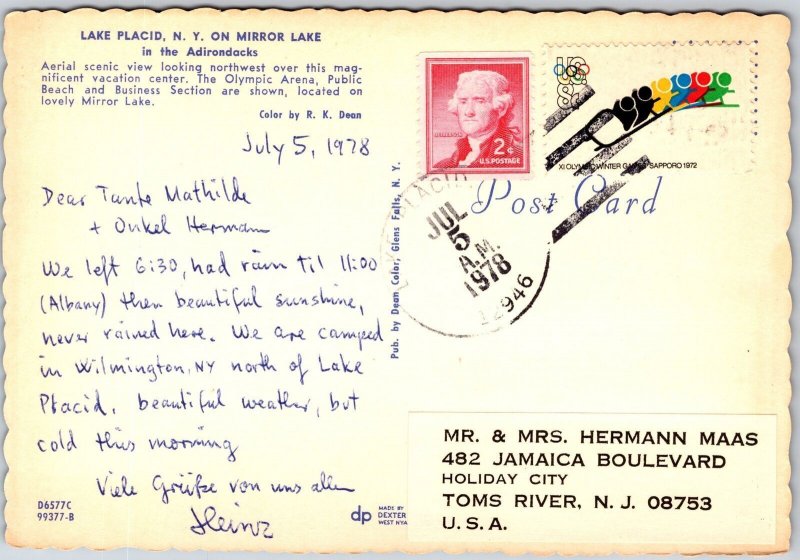 LAKE PLACID, N. Y. ON MIRROR LAKE
in the Adirondacks
Aerial scenic view looking northwest over this mag-
nificent vacation center. The Olympic Arena, Public
Beach and Business Section are shown, located on
lovely Mirror Lake.
Color by R. K. Dean
July 5, 1978
Dear Tante Mathilde
+ Onkel Herman
We left 6:30, had rain til 11:00
(Albany) then beautiful sunshine,
never rained here. We are camped
in Wilmington, NY north of Lake
Placid, beautiful weather, but
cold this morning
Viele Grüße von uns allen
Heinz
D6577C
99377-B
dp
MADE BY
DEXTER
WEST NYA
Pub. by Dean Color, Glens Falls, N. Y.
JEFFERSON
2¢
U.S. POSTAGE
US
8¢
XI OLYMPIC WINTER GAMES SAPPORO 1972
Post Card
LAKE PLACID
JUL
5
A.M.
1978
12946
MR. & MRS. HERMANN MAAS
482 JAMAICA BOULEVARD
HOLIDAY CITY
TOMS RIVER, N. J. 08753
U. S. A.